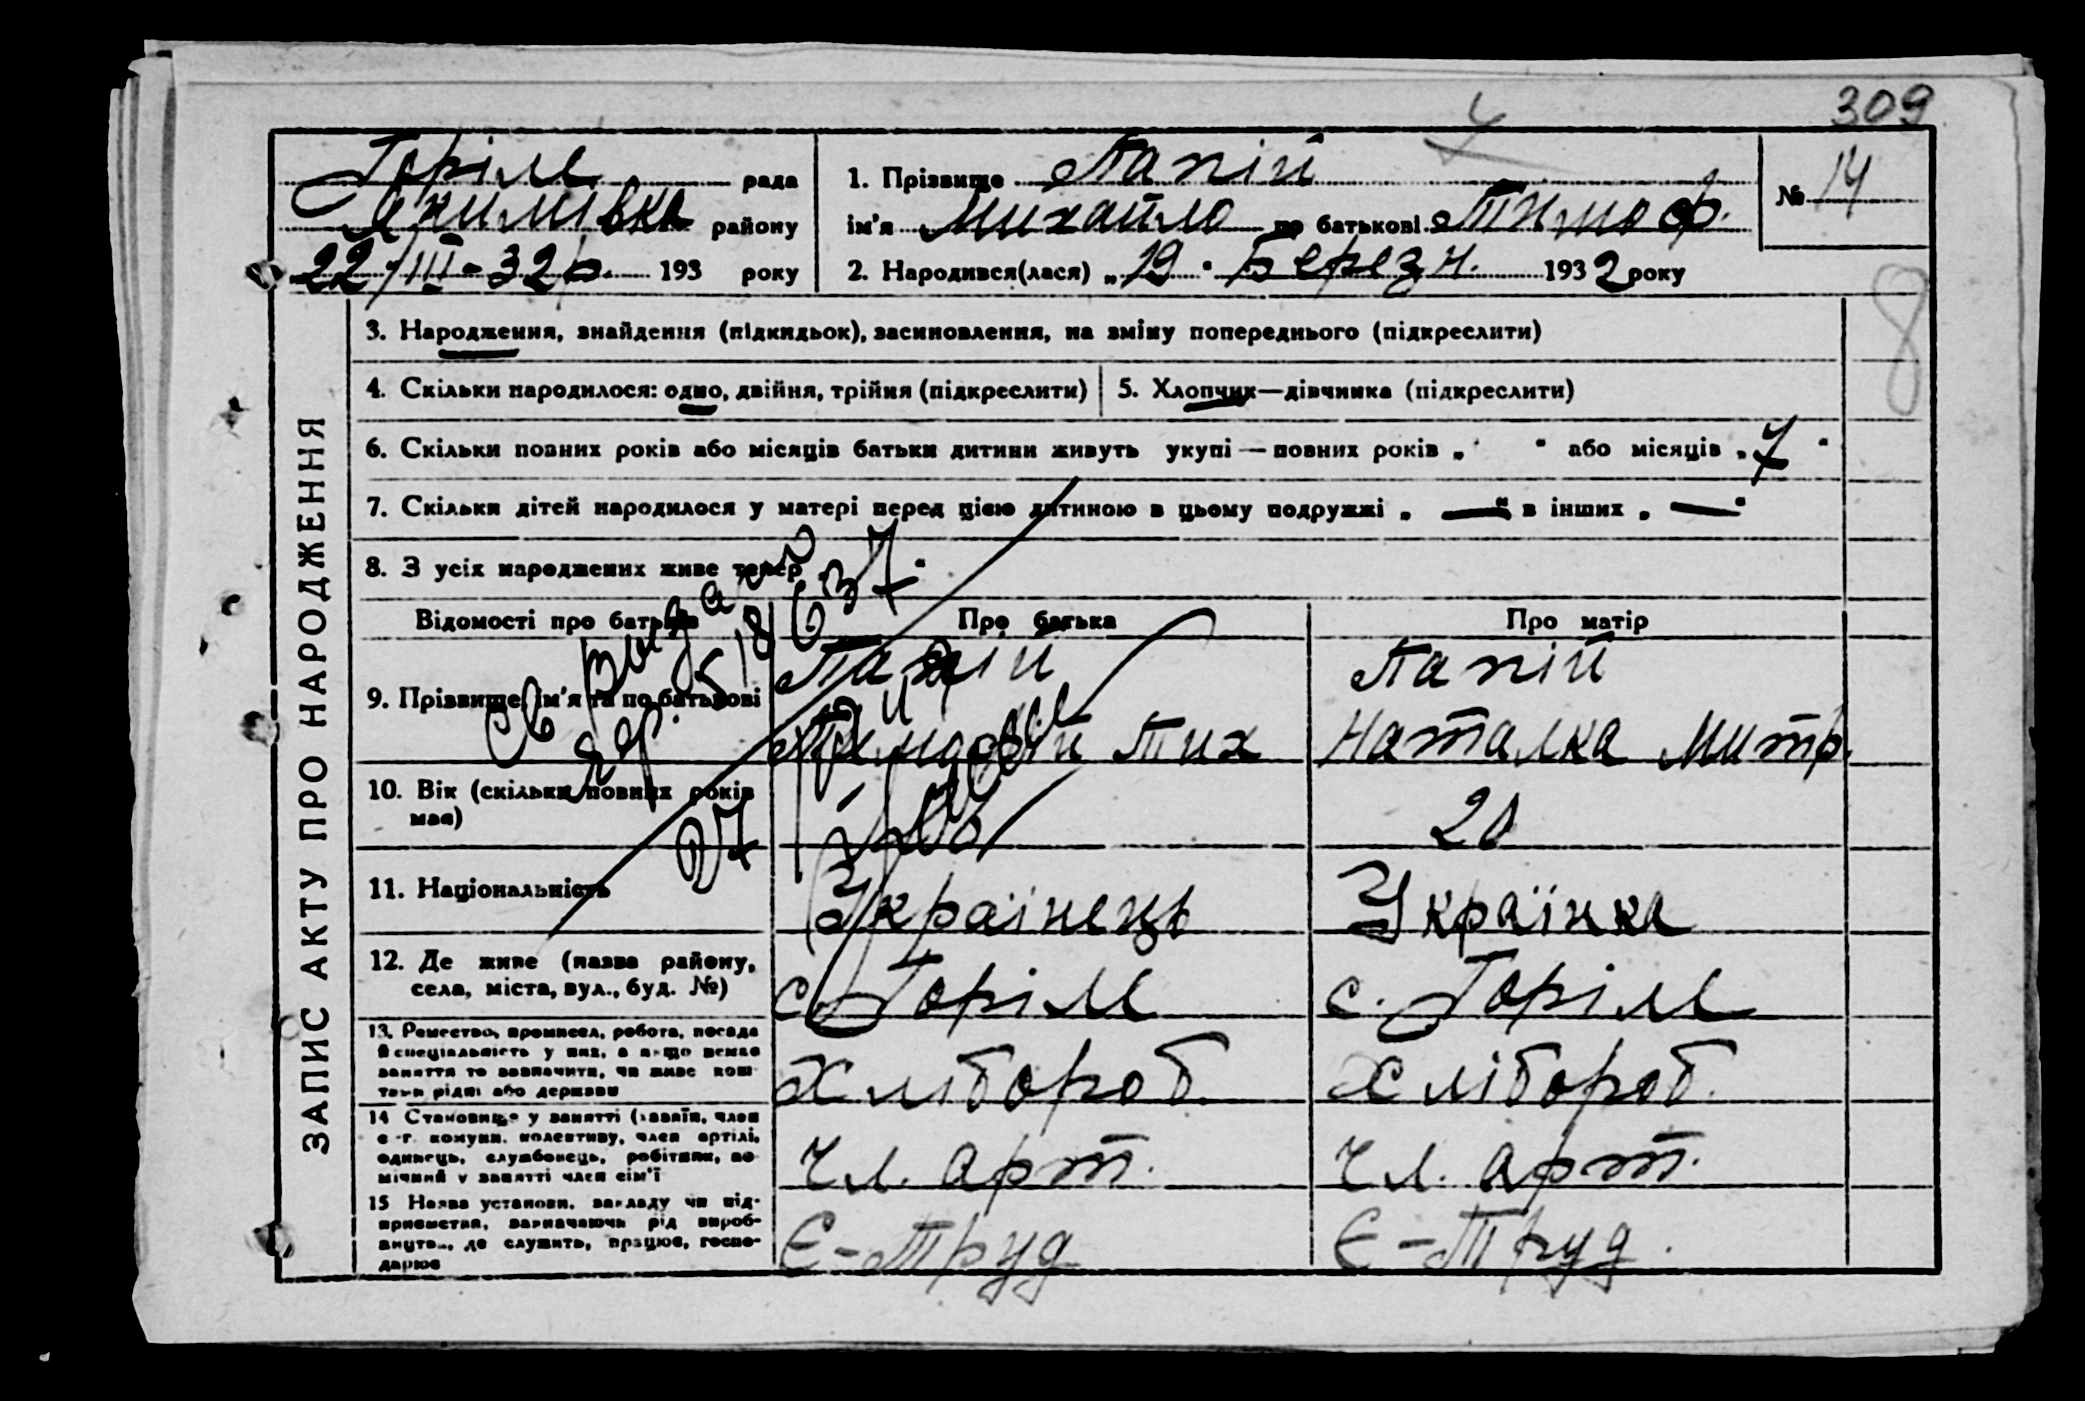 309
Горіле рада
Якимівка району
22/III-32р. 193 року
1. Прізвище Папій
ім'я Михайло по батькові Тимоф.
2. Народився(лася) „19" Березн. 1932 року
№ 14
8
ЗАПИС АКТУ ПРО НАРОДЖЕННЯ
3. Народження, знайдення (підкидьок), засиновлення, на зміну попереднього (підкреслити)
4. Скільки народилося: одно, двійня, трійня (підкреслити)
5. Хлопчик—дівчинка (підкреслити)
6. Скільки повних років або місяців батьки дитини живуть укупі — повних років „ " або місяців „7"
7. Скільки дітей народилося у матері перед цією дитиною в цьому подружжі „ — " в інших „ — "
8. З усіх народжених живе тепер
Св выдано
ЯР. 518637
Відомості про батьків
Про батька
Про матір
9. Прізвище, ім'я та по батькові
Папій
Тих
Папій
Наталка Митр.
10. Вік (скільки повних років
має)
20
11. Національність
Українець
Українка
12. Де живе (назва району,
села, міста, вул., буд. №)
с. Горіле
с. Горіле
13. Ремество, промисел, робота, посада
й спеціальність у них, а якщо немає
заняття то зазначити, чи живе кош-
том рідні або держави
Хлібороб.
Хлібороб.
14 Становище у занятті (хазяїн, член
с.-г. комуни, колективу, член артілі,
одинець, службовець, робітник, по-
мічний у занятті член сім'ї
Чл. арт.
Чл. арт.
15 Назва установи, закладу чи під-
приємства, зазначаючи рід вироб-
ництва, де служить, працює, госпо-
дарює
Є-Труд
Є-Труд.